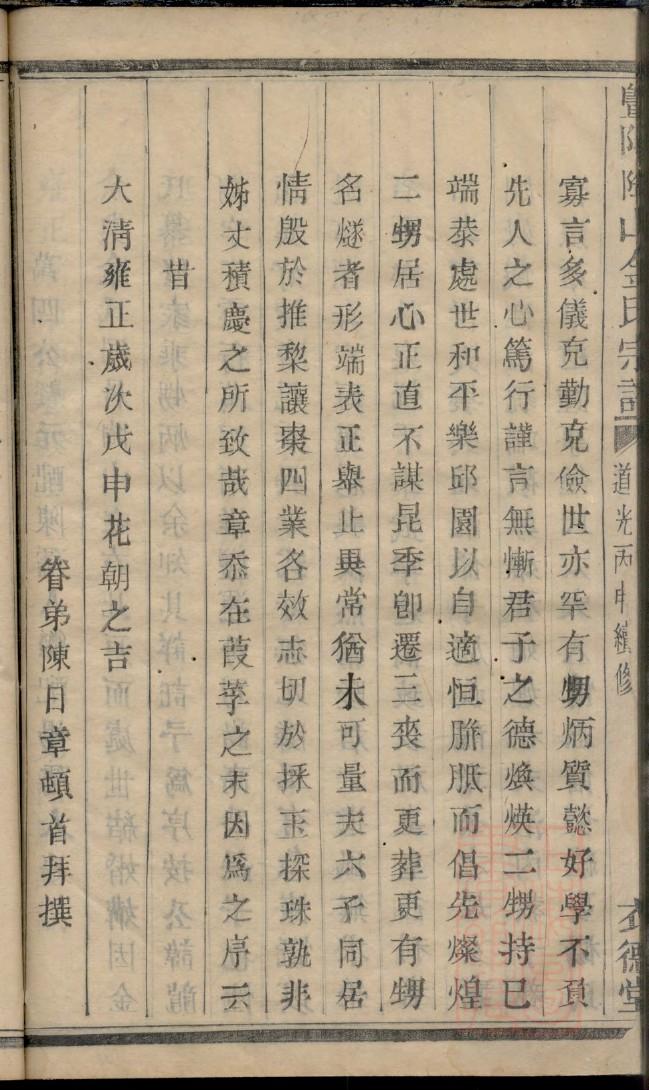 金氏宗譜 道光丙申續修 德堂
寡言多儀克勤克儉世亦罕有甥炳質懿好學不負
先人之心篤行謹言無慚君子之德煥煐二甥持己
端恭處世和平樂邱園以自適恒胼胝而倡先燦煌
二甥居心正直不謀昆季卽遷三喪而更葬更有甥
名燧者形端表正舉止異常猶未可量夫六子同居
情殷於推棃讓棗四業各效志切於採玉探珠孰非
姊丈積慶之所致哉章忝在葭莩之末因爲之序云
昔
大清雍正歲次戊申花朝之吉
眷弟陳日章頓首拜撰